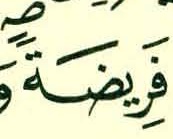 فَرِيضَةً